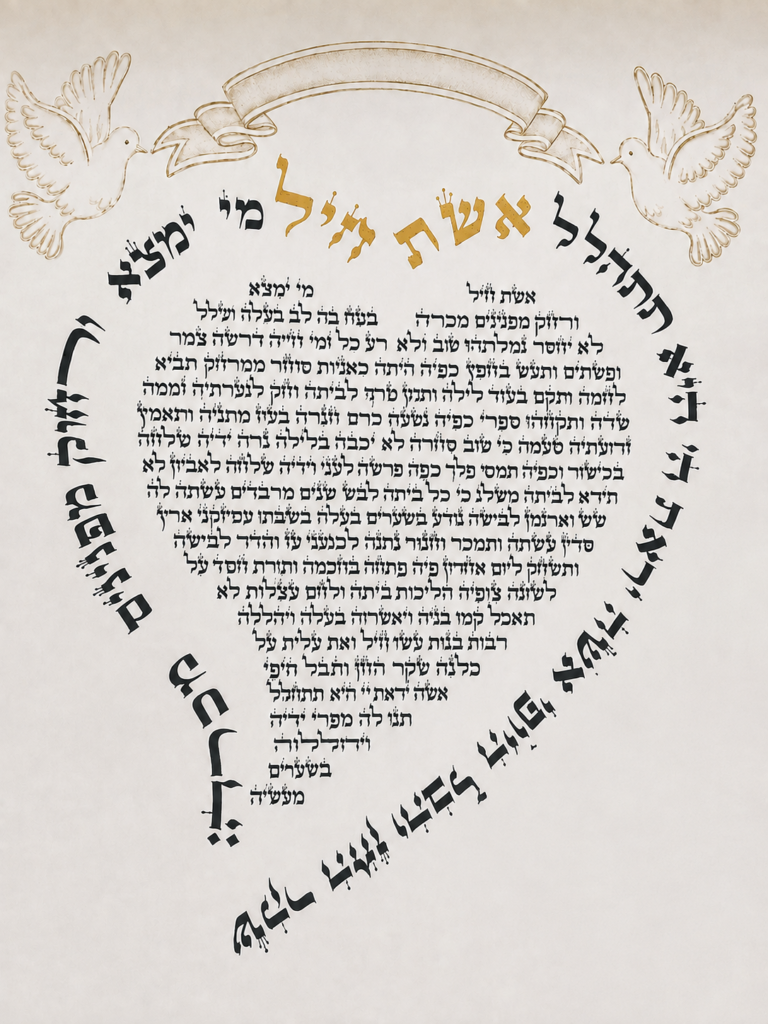 אשת חיל מי ימצא ורחוק מפנינים מכרה
שקר החן והבל היופי אשה יראת ה' היא תתהלל
אשת חיל
מי ימצא
ורחוק מפנינים מכרה
בטח בה לב בעלה ושלל
לא יחסר גמלתהו טוב ולא רע כל ימי חייה דרשה צמר
ופשתים ותעש בחפץ כפיה היתה כאניות סוחר ממרחק תביא
לחמה ותקם בעוד לילה ותתן טרף לביתה וחק לנערתיה זממה
שדה ותקחהו מפרי כפיה נטעה כרם חגרה בעוז מתניה ותאמץ
זרועתיה טעמה כי טוב סחרה לא יכבה בלילה נרה ידיה שלחה
בכישור וכפיה תמכו פלך כפה פרשה לעני וידיה שלחה לאביון לא
תירא לביתה משלג כי כל ביתה לבש שנים מרבדים עשתה לה
שש וארגמן לבושה נודע בשערים בעלה בשבתו עם זקני ארץ
סדין עשתה ותמכר וחגור נתנה לכנעני עז והדר לבושה
ותשחק ליום אחרון פיה פתחה בחכמה ותורת חסד על
לשונה צופיה הליכות ביתה ולחם עצלות לא
תאכל קמו בניה ויאשרוה בעלה ויהללה
רבות בנות עשו חיל ואת עלית על
כלנה שקר החן והבל היפי
אשה יראת יי היא תתהלל
תנו לה מפרי ידיה
ויהללוה
בשערים
מעשיה